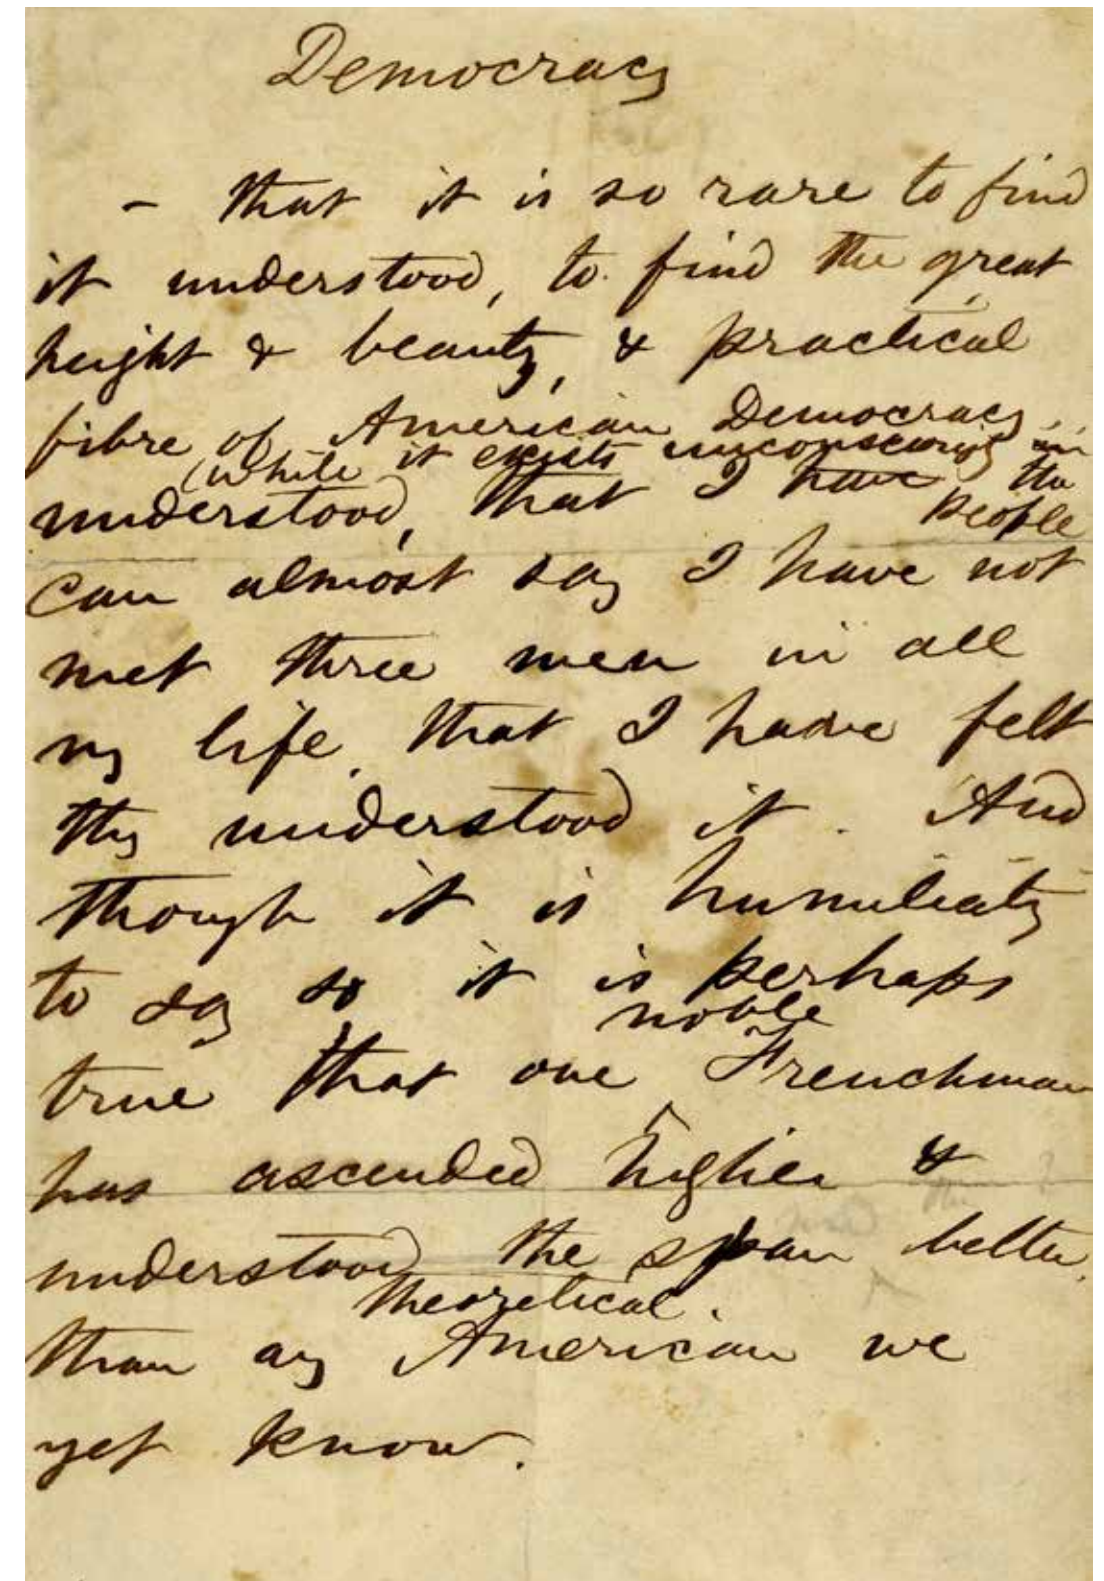 Democracy
– that it is so rare to find
it understood, to find the great
height & beauty, & practical
fibre of American Democracy
(while it exists unconsciously in
the
people
understood, that I have
can almost say I have not
met three men in all
my life, that I have felt
they understood it. And
though it is humiliating
to say so it is perhaps
noble
true that one Frenchman
has ascended higher &
understood the span better,
theoretical.
than any American we
yet know.